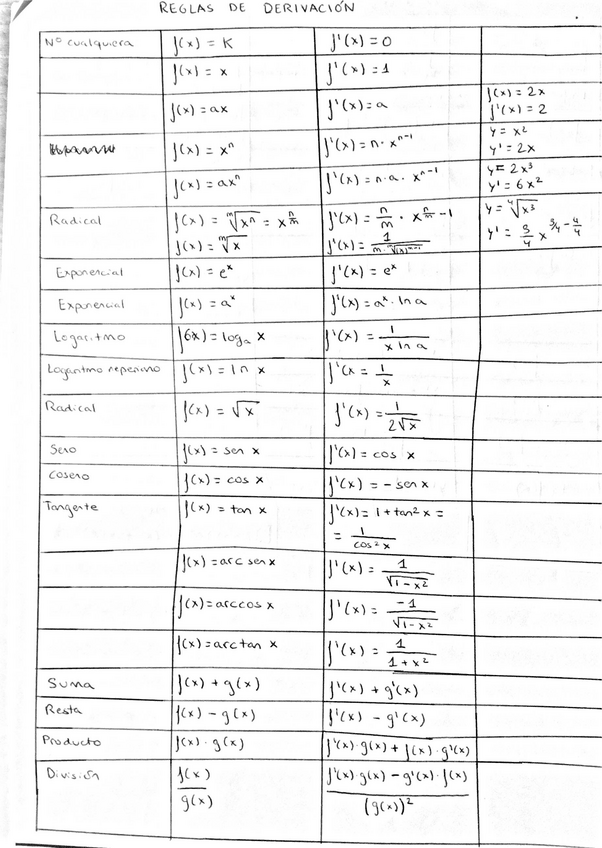 REGLAS DE DERIVACIÓN
Nº cualquiera f(x) = K f'(x) = 0
f(x) = x f'(x) = 1
f(x) = ax f'(x) = a f(x) = 2x
f'(x) = 2
f(x) = xⁿ f'(x) = n · xⁿ⁻¹ y = x²
y' = 2x
f(x) = axⁿ f'(x) = n·a · xⁿ⁻¹ y = 2x³
y' = 6x²
Radical f(x) = ᵐ√xⁿ = x^(n/m) f'(x) = n/m · x^(n/m) - 1 y = ⁴√x³
f(x) = ᵐ√x f'(x) = 1 / y' = 3/4 x^(3/4 - 4/4)
Exponencial f(x) = eˣ f'(x) = eˣ
Exponencial f(x) = aˣ f'(x) = aˣ · ln a
Logaritmo f(x) = logₐ x f'(x) = 1/(x ln a)
Logaritmo neperiano f(x) = ln x f'(x = 1/x
Radical f(x) = √x f'(x) = 1/(2√x)
Seno f(x) = sen x f'(x) = cos x
Coseno f(x) = cos x f'(x) = - sen x
Tangente f(x) = tan x f'(x) = 1 + tan² x =
= 1/(cos² x)
f(x) = arc sen x f'(x) = 1/√(1-x²)
f(x) = arccos x f'(x) = -1/√(1-x²)
f(x) = arctan x f'(x) = 1/(1+x²)
Suma f(x) + g(x) f'(x) + g'(x)
Resta f(x) - g(x) f'(x) - g'(x)
Producto f(x) · g(x) f'(x) · g(x) + f(x) · g'(x)
División f(x)/g(x) (f'(x) · g(x) - g'(x) · f(x))/(g(x))²